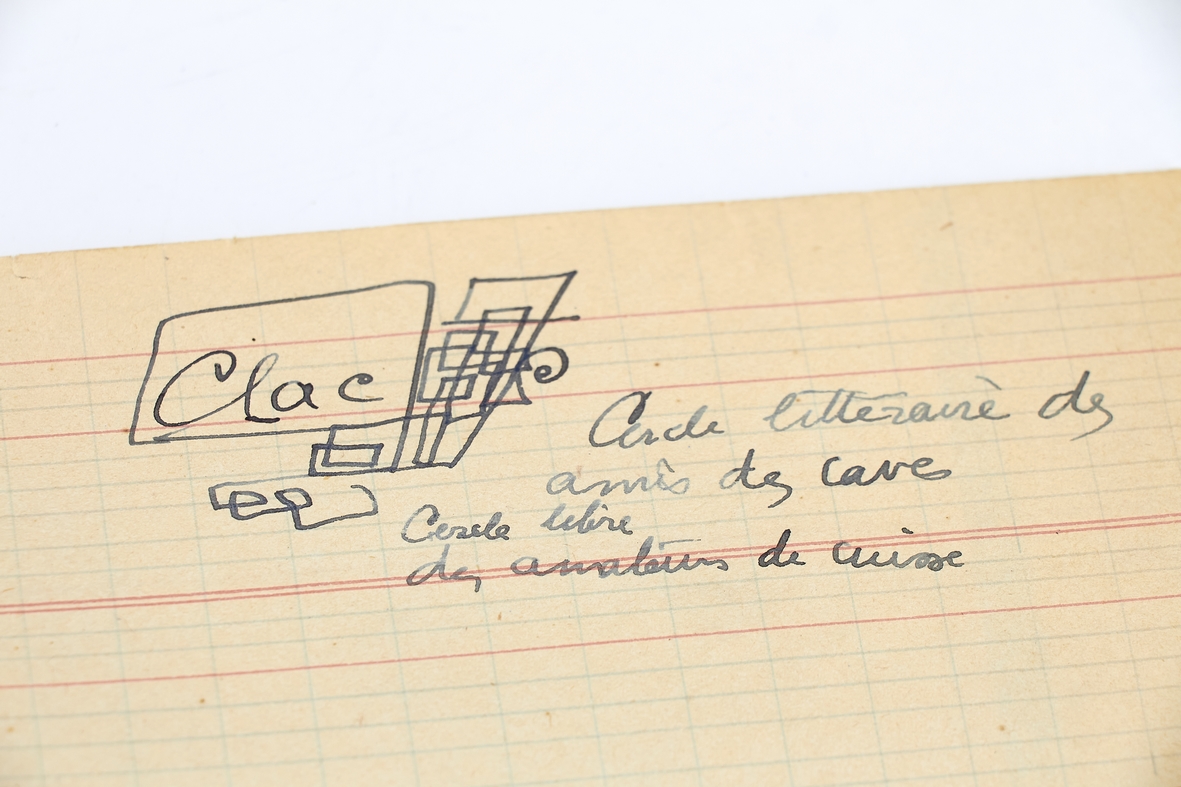 Clac
Cercle littéraire des
amis des caves
Cercle libre
des amateurs de cuisse